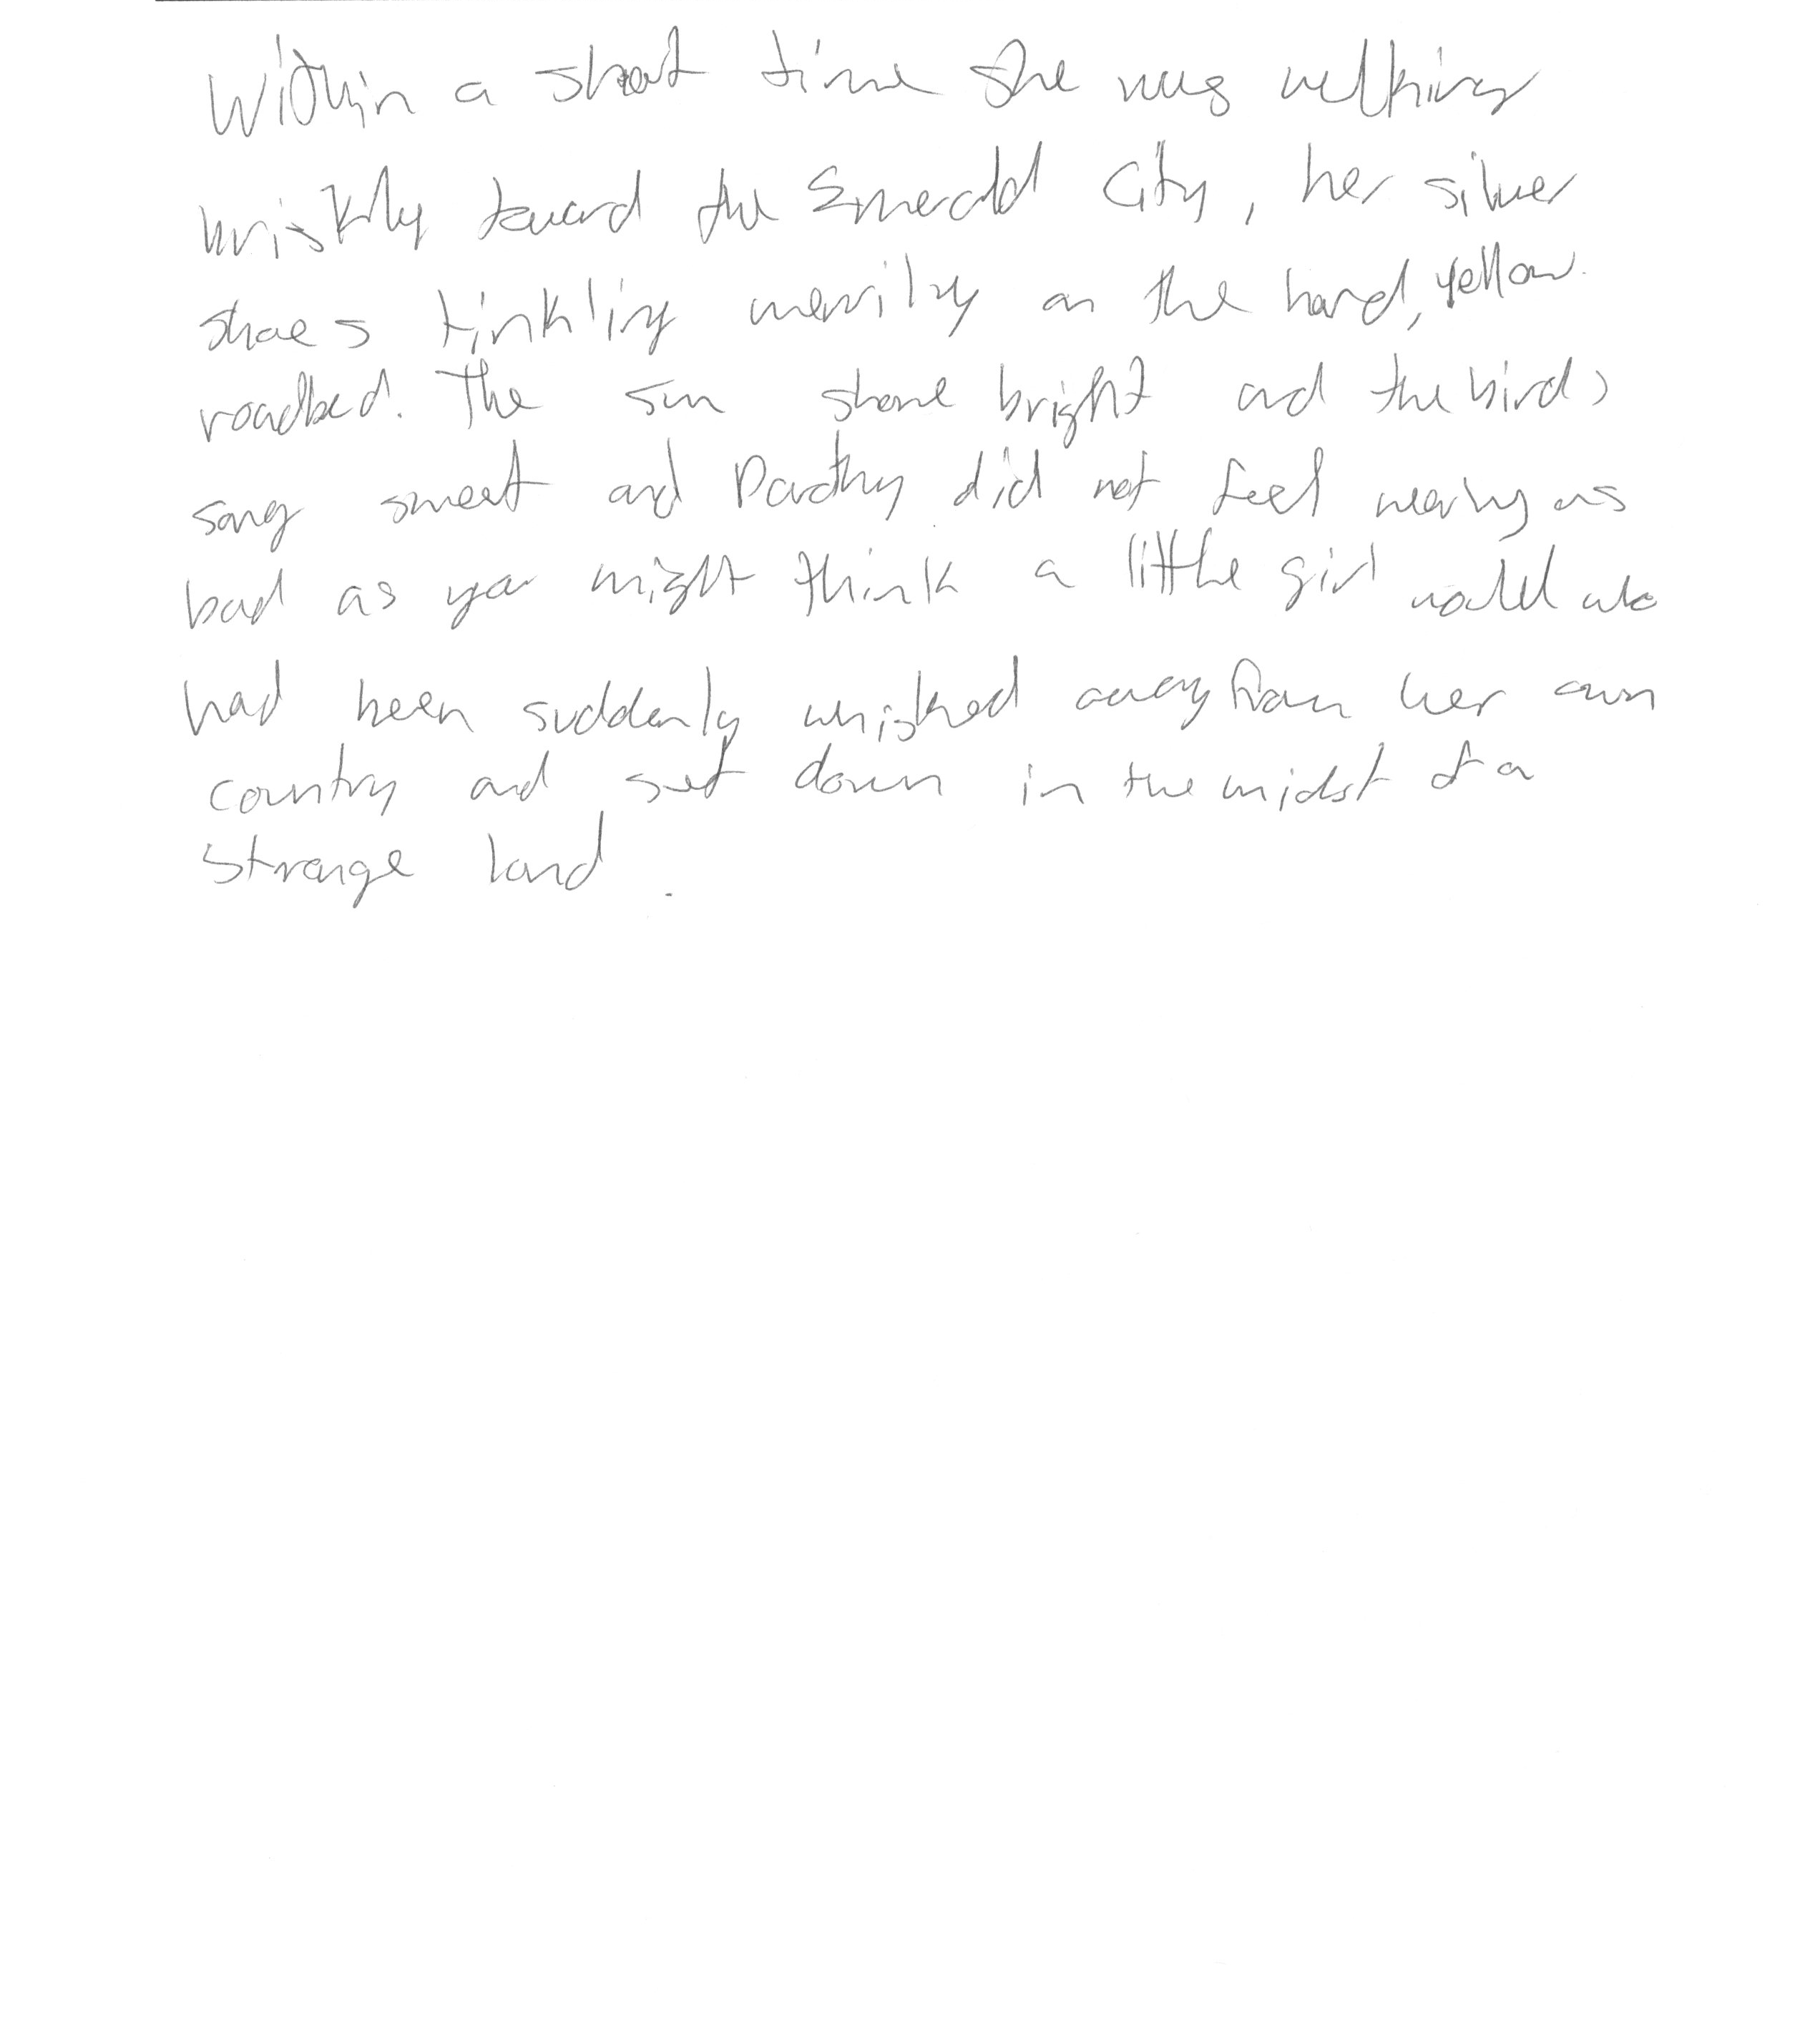 Within a short time she was walking
briskly toward the Emerald City, her silver
shoes tinkling merrily on the hard, yellow
roadbed. The sun shone bright and the birds
sang sweet and Dorothy did not feel nearly as
bad as you might think a little girl would who
had been suddenly whisked away from her own
country and set down in the midst of a
strange land.